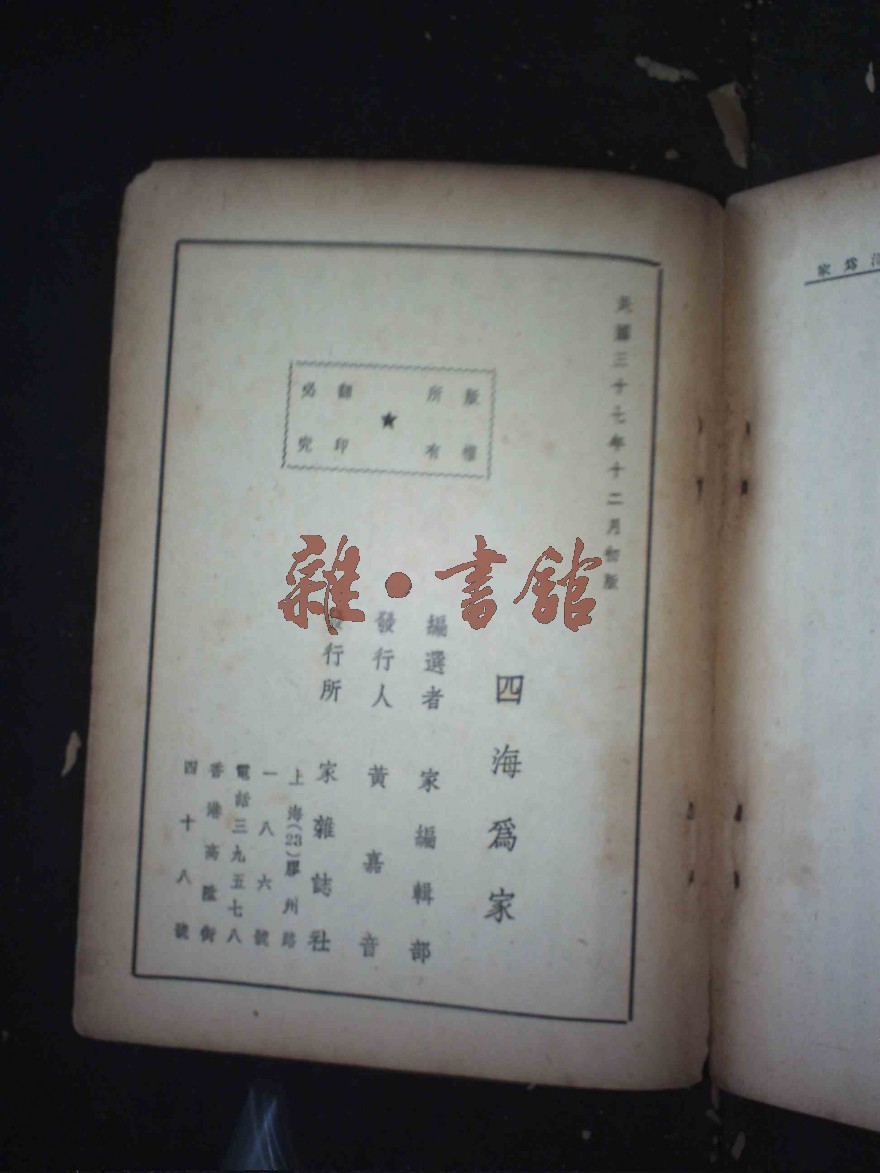 民國三十七年十二月初版
版權所有
★
翻印必究
四海爲家
編選者 家編輯部
發行人 黃嘉音
發行所 家雜誌社
上海(23)膠州路
一八六號
電話三九五七八
香港高陞街
四十八號
雜·書館
爲家